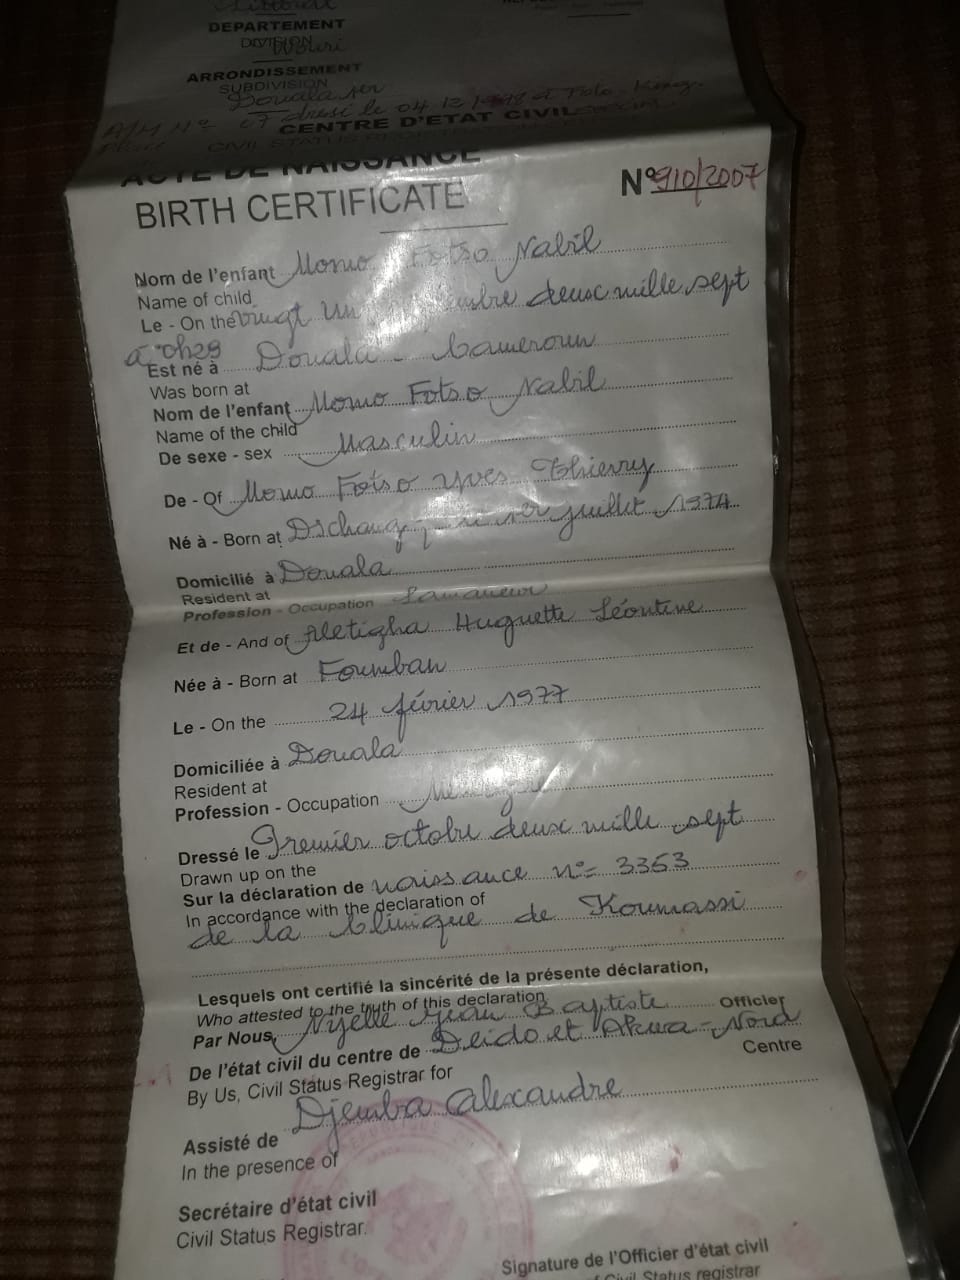 Littoral
DEPARTEMENT
DIVISION Wouri
ARRONDISSEMENT
SUBDIVISION
Douala 1er
N° 07 dressé le 04 12 1998 à
CENTRE D'ETAT CIVIL
ACTE DE NAISSANCE
BIRTH CERTIFICATE
N° 910/2007
Nom de l'enfant Momo Fotso Nabil
Name of child
Le - On the Vingt un deux mille sept
Est né à Douala - Cameroun
Was born at
Nom de l'enfant Momo Fotso Nabil
Name of the child
De sexe - sex Masculin
De - Of Momo Fotso Yves Thierry
Né à - Born at Dschang, 1er juillet 1974
Domicilié à Douala
Resident at
Profession - Occupation
Et de - And of Huguette Léontine
Née à - Born at Foumban
Le - On the 24 février 1977
Domiciliée à Douala
Resident at
Profession - Occupation
Dressé le Premier octobre deux mille sept
Drawn up on the
Sur la déclaration de naissance n° 3353
In accordance with the declaration of
de la Clinique de Koumassi
Lesquels ont certifié la sincérité de la présente déclaration,
Who attested to the truth of this declaration
Par Nous, Jean Baptiste Officier
De l'état civil du centre de Deido et Akwa-Nord
By Us, Civil Status Registrar for Centre
Djemba Alexandre
Assisté de
In the presence of
Secrétaire d'état civil
Civil Status Registrar.
Signature de l'Officier d'état civil
of Civil Status registrar